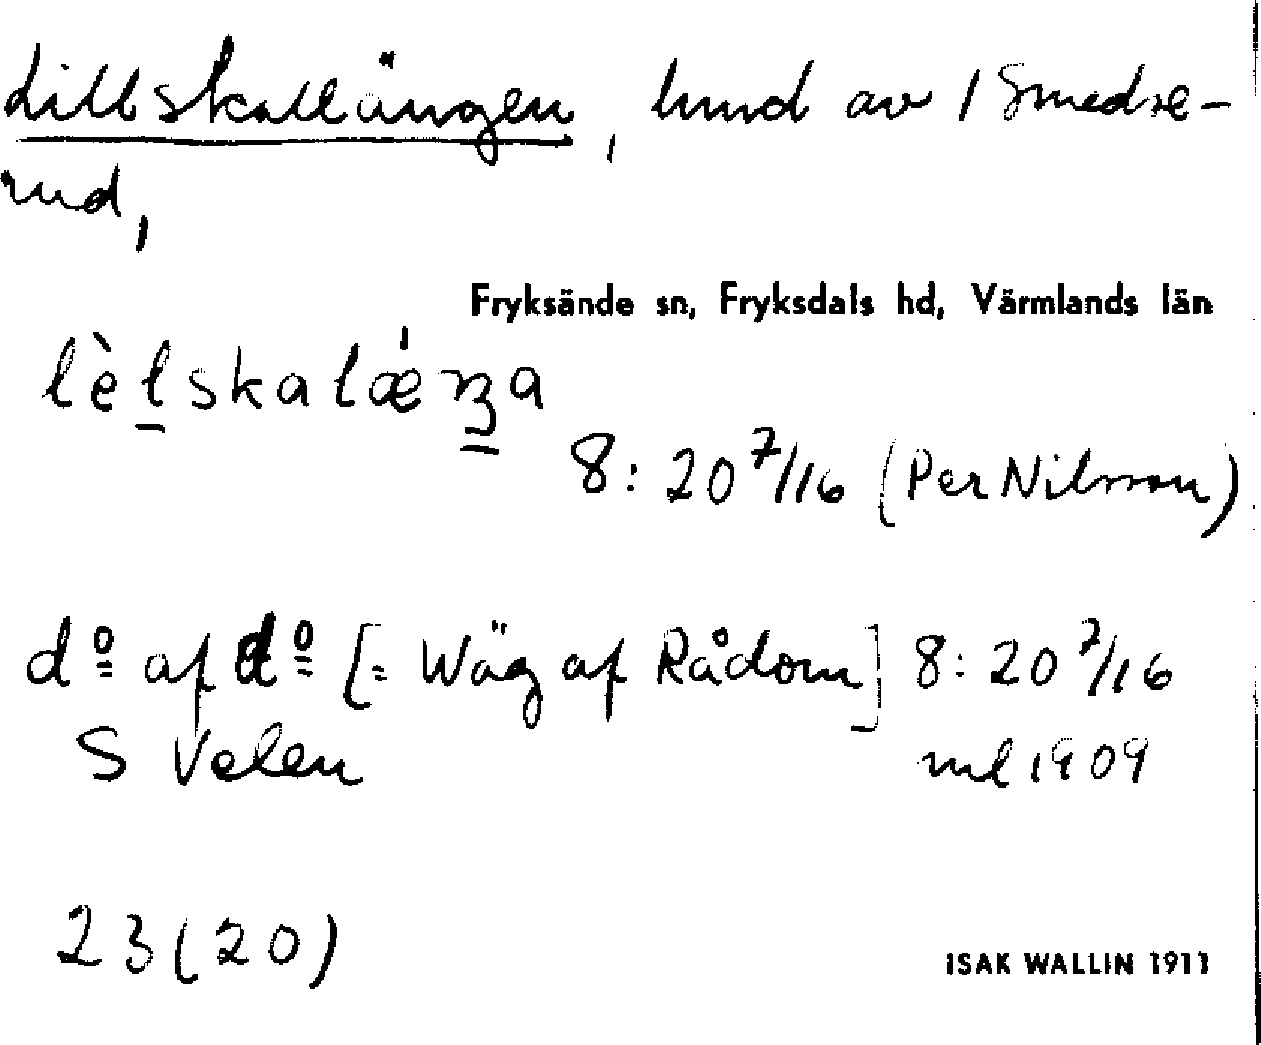 Lillskallängen, hmd av 1 Smedse-
rud,
Fryksände sn, Fryksdals hd, Värmlands län
lèlskalǽŋa
8:20 7/16 (Per Nilsson)
do af do [= Wäg af Rådom] 8:20 7/16
S Velen ml 1909
23(20)
ISAK WALLIN 1911